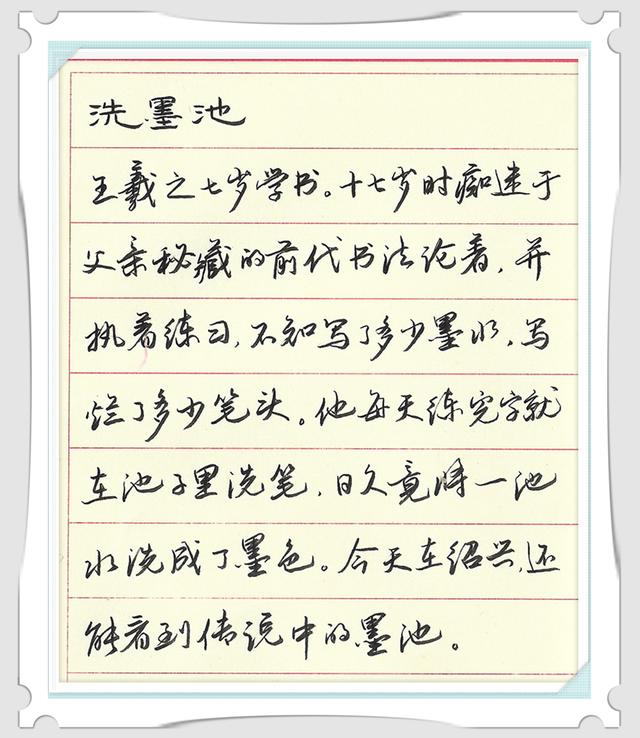 洗墨池
王羲之七岁学书。十七岁时痴迷于
父亲秘藏的前代书法论着，并
执着练习，不知写了多少墨水，写
烂了多少笔头。他每天练完字就
在池子里洗笔，日久竟将一池
水洗成了墨色。今天在绍兴，还
能看到传说中的墨池。